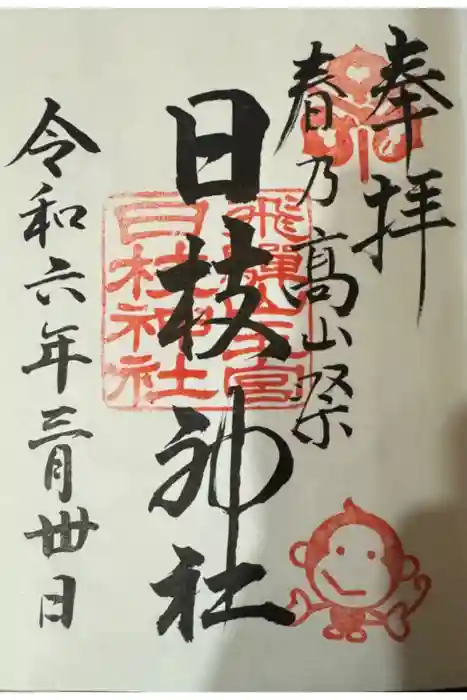 奉拝
春乃高山祭
日枝神社
飛驒山王宮
日枝神社
令和六年三月卅日